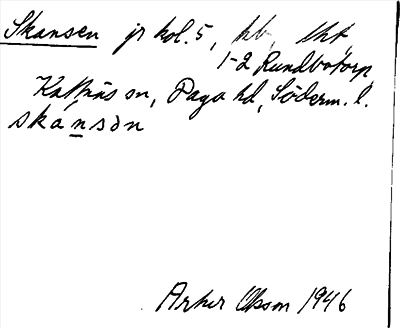 Skansen jr kol. 5, hb, lht
1-2 Rundbotorp,
Kattnäs sn, Daga hd, Söderm. l.
skánsən
Arher Olsson 1946